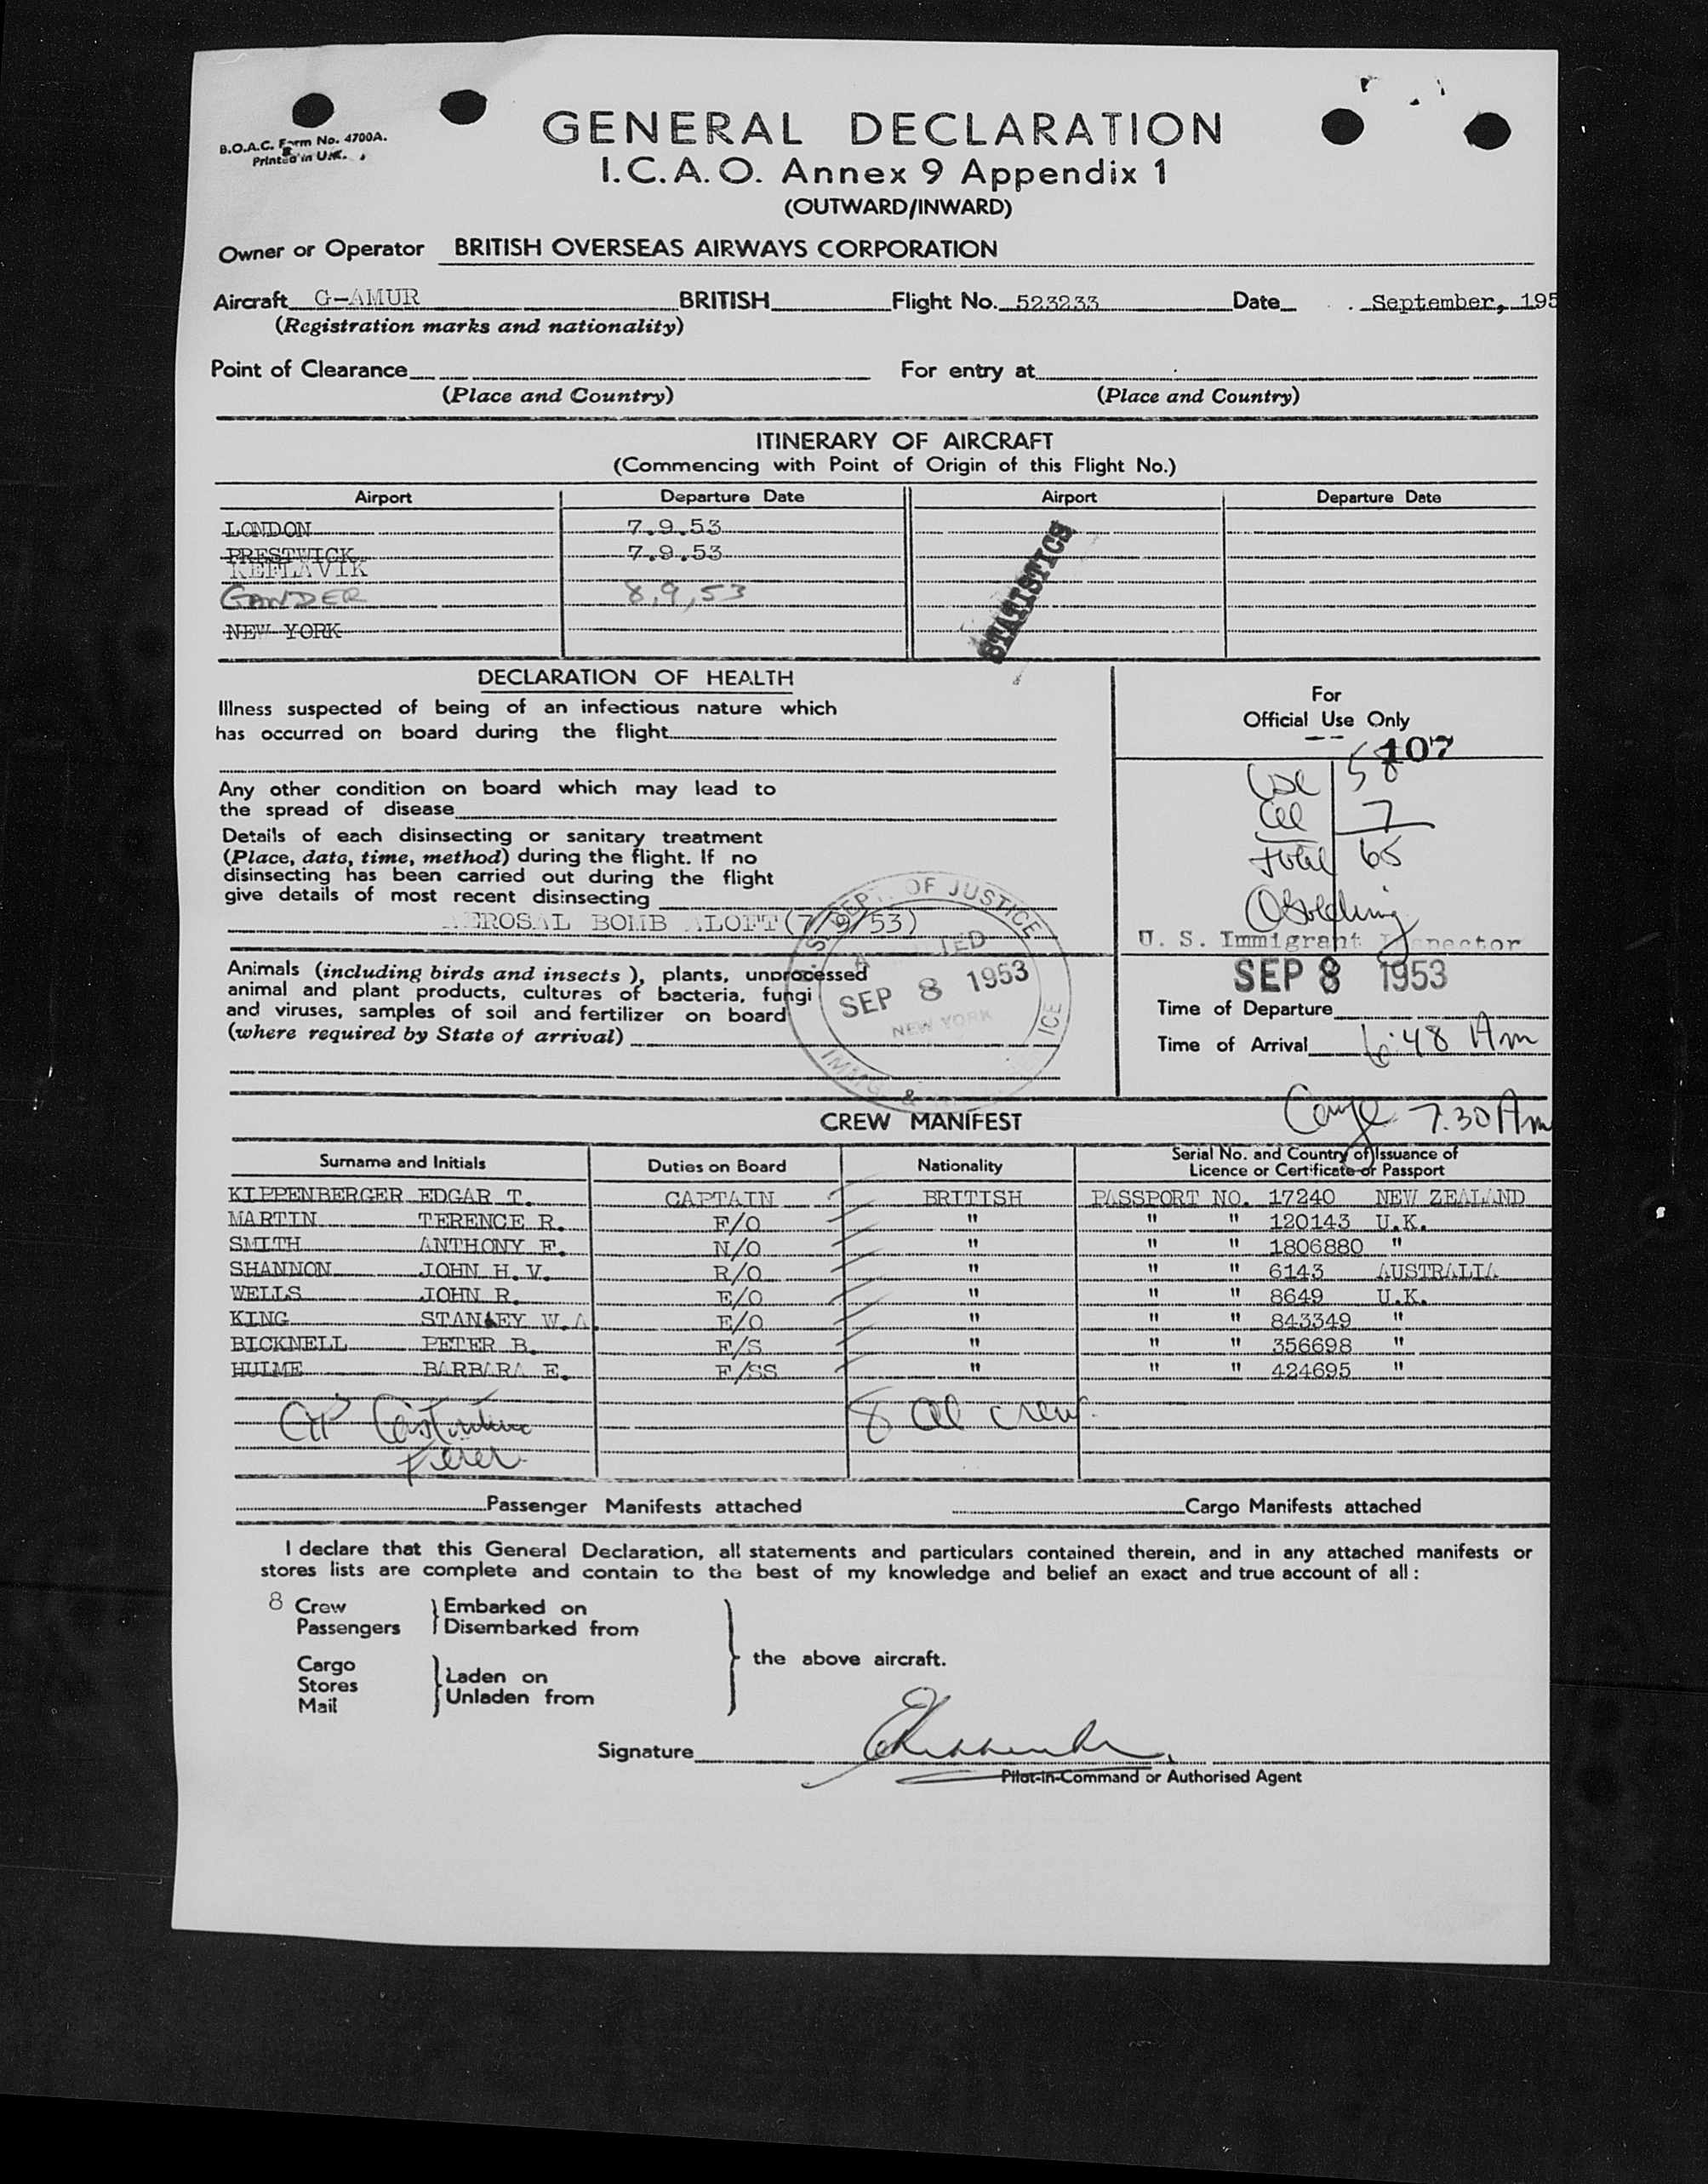 B.O.A.C. Form No. 4700A.
Printed in U.K.
GENERAL DECLARATION
I.C.A.O. Annex 9 Appendix 1
(OUTWARD/INWARD)
Owner or Operator BRITISH OVERSEAS AIRWAYS CORPORATION
Aircraft G-AMUR BRITISH Flight No. 523233 Date September, 195
(Registration marks and nationality)
Point of Clearance For entry at
(Place and Country) (Place and Country)
ITINERARY OF AIRCRAFT
(Commencing with Point of Origin of this Flight No.)
Airport Departure Date Airport Departure Date
LONDON 7.9.53
PRESTWICK 7.9.53
KEFLAVIK
GANDER 8,9,53
NEW YORK
STATISTICS
DECLARATION OF HEALTH
Illness suspected of being of an infectious nature which
has occurred on board during the flight
Any other condition on board which may lead to
the spread of disease
Details of each disinsecting or sanitary treatment
(Place, date, time, method) during the flight. If no
disinsecting has been carried out during the flight
give details of most recent disinsecting
AEROSAL BOMB ALOFT(7/9/53)
Animals (including birds and insects), plants, unprocessed
animal and plant products, cultures of bacteria, fungi
and viruses, samples of soil and fertilizer on board
(where required by State of arrival)
DEPT. OF JUSTICE
SEP 8 1953
NEW YORK
IMMIG. &
For
Official Use Only
107
USC 58
All 7
total 65
U. S. Immigrant Inspector
SEP 8 1953
Time of Departure
Time of Arrival 6:48 Am
7.30 Am
CREW MANIFEST
Surname and Initials Duties on Board Nationality Serial No. and Country of Issuance of
Licence or Certificate or Passport
KIPPENBERGER EDGAR T. CAPTAIN BRITISH PASSPORT NO. 17240 NEW ZEALAND
MARTIN TERENCE R. F/O " " " 120143 U.K.
SMITH ANTHONY F. N/O " " " 1806880 "
SHANNON JOHN H. V. R/O " " " 6143 AUSTRALIA
WELLS JOHN R. E/O " " " 8649 U.K.
KING STANLEY W.A. E/O " " " 843349 "
BICKNELL PETER B. F/S " " " 356698 "
HULME BARBARA E. F/SS " " " 424695 "
8 all crew
Passenger Manifests attached Cargo Manifests attached
I declare that this General Declaration, all statements and particulars contained therein, and in any attached manifests or
stores lists are complete and contain to the best of my knowledge and belief an exact and true account of all :
8 Crew Embarked on
Passengers Disembarked from
the above aircraft.
Cargo
Stores Laden on
Mail Unladen from
Signature
Pilot-in-Command or Authorised Agent